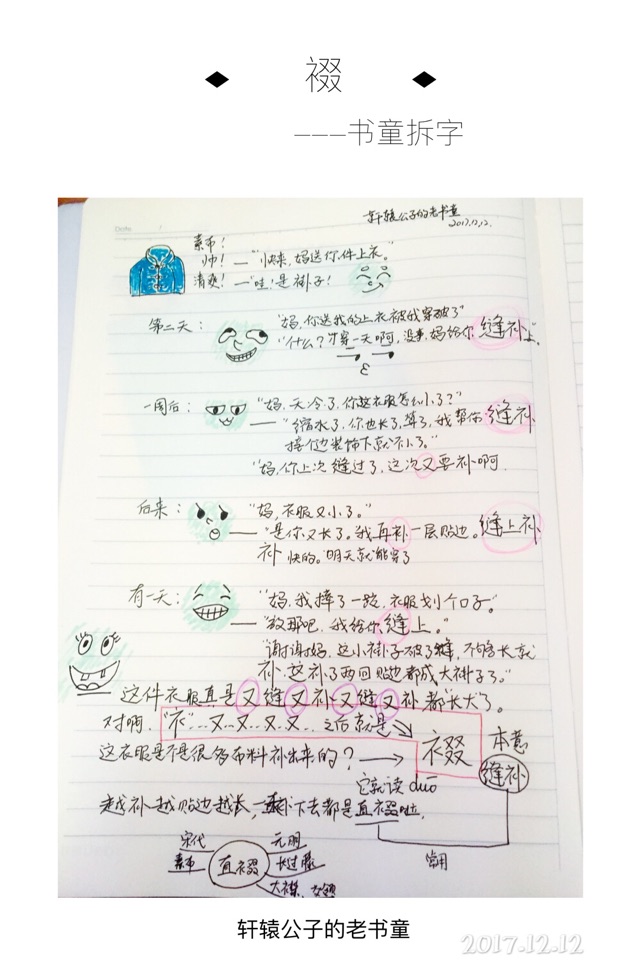 裰
———书童拆字
轩辕公子的老书童
2017.12.12.
Date
素布！
帅！——“快来，妈送你件上衣。”
清爽！——“哇！是褂子！
第二天：“妈，你送我的上衣被我穿破了”
“什么？才穿一天啊，没事，妈给你缝补上。
一周后：“妈，天冷了，你这衣服怎么小了？”
——“缩水了，你也长了，算了，我帮你缝补
接个边装饰下就不小了。”
“妈，你上次缝过了，这次又要补啊.
后来：“妈，衣服又小了。”
——“是你又长了。我再补一层贴边。缝上补
补快的。明天就能穿了
有一天：“妈，我摔了一跤，衣服划个口子。”
——“放那吧，我给你缝上。”
“谢谢妈，这小褂子不破了缝，不够长就
补，这补了两回贴边都成大褂子了。”
这件衣服真是又缝又补又缝又补都长大了。
对啊，“衣”...又...又...又...又...之后就是
这衣服是不是很多布料补出来的？
衣叕
本意
缝补
它就读 duō
越补越贴边越长，一直补下去都是直裰啦，
常用
宋代
素布
直裰
元明
长过膝
轩辕公子的老书童
2017.12.12